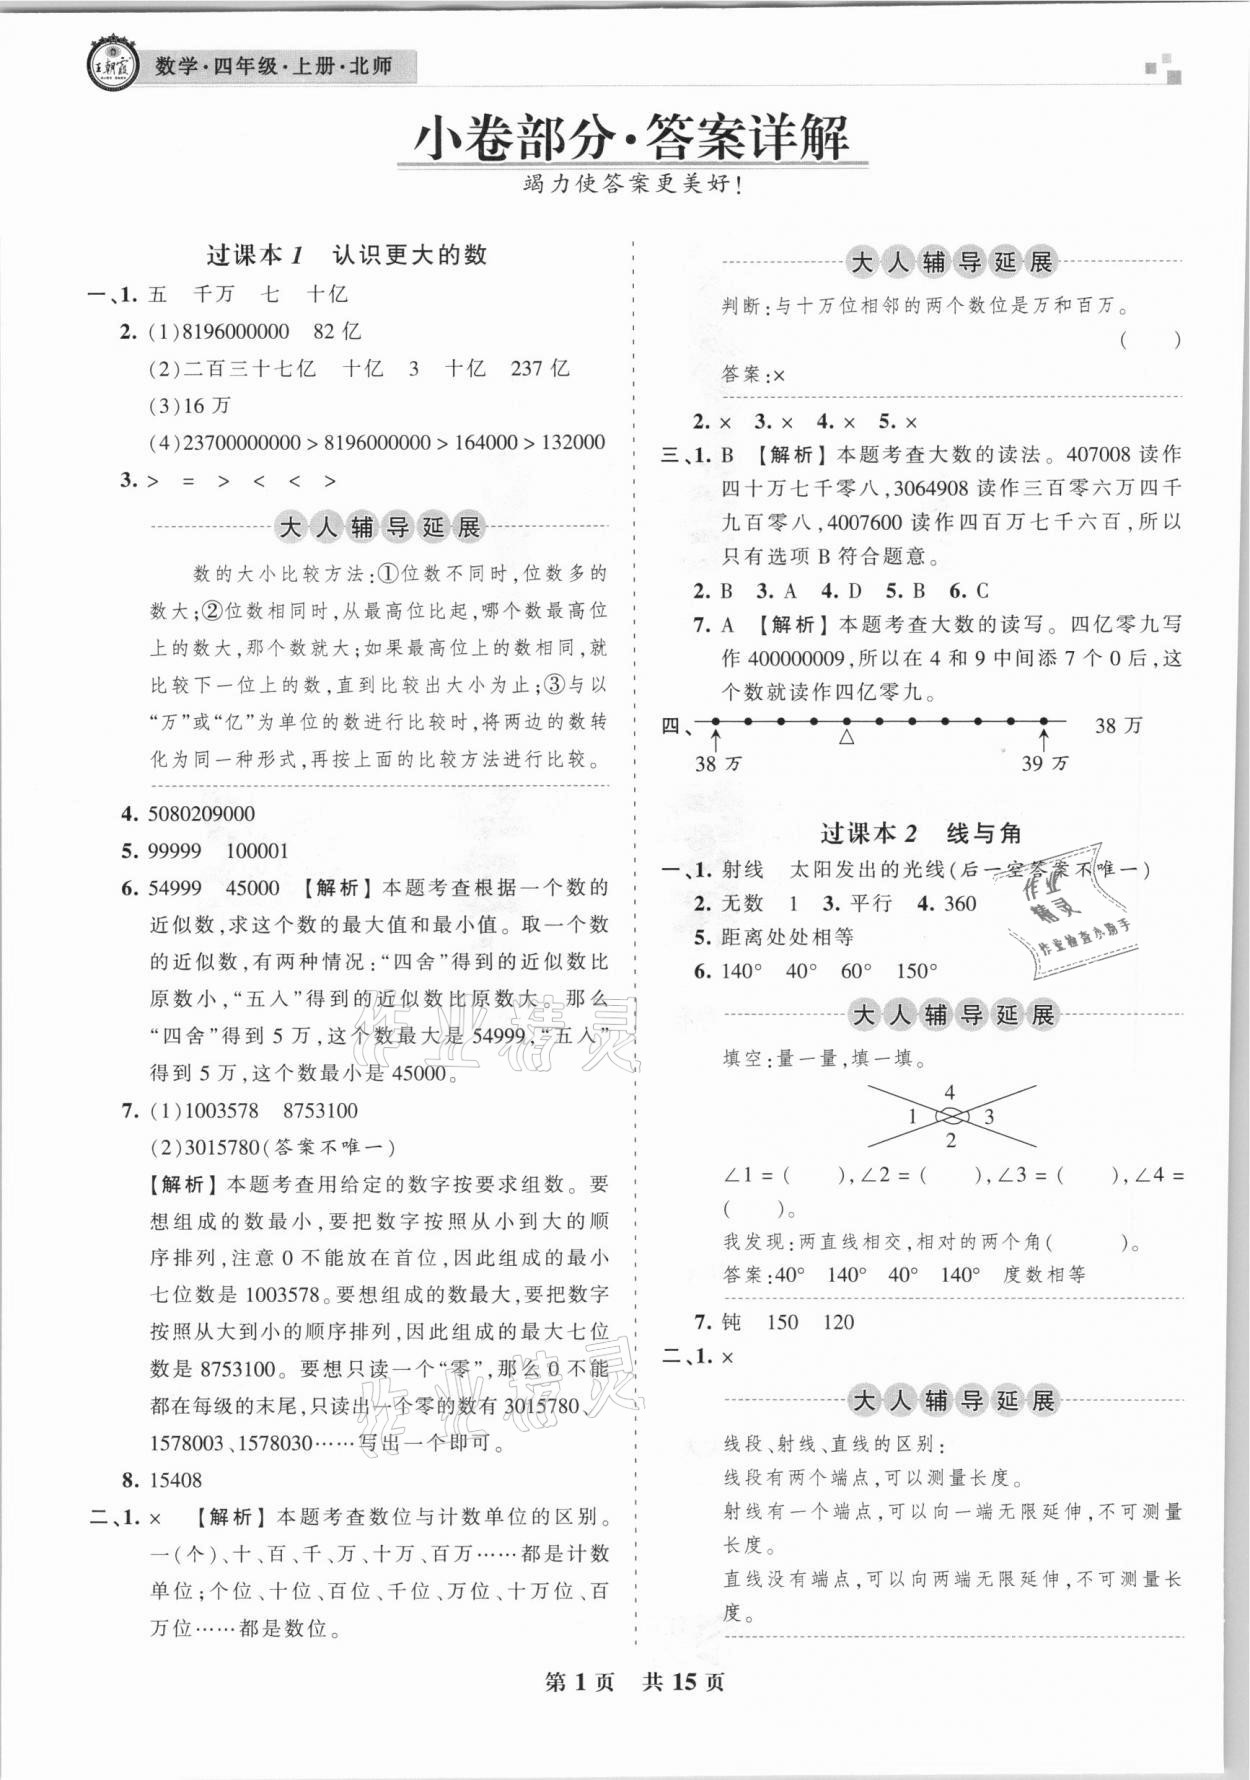 王朝霞
数学·四年级·上册·北师
小卷部分·答案详解
竭力使答案更美好！
过课本1 认识更大的数
一、1. 五 千万 七 十亿
2. (1)8196000000 82亿
(2)二百三十七亿 十亿 3 十亿 237亿
(3)16万
(4)23700000000＞8196000000＞164000＞132000
3. ＞ ＝ ＞ ＜ ＜ ＞
大人辅导延展
数的大小比较方法:①位数不同时,位数多的
数大;②位数相同时,从最高位比起,哪个数最高位
上的数大,那个数就大;如果最高位上的数相同,就
比较下一位上的数,直到比较出大小为止;③与以
“万”或“亿”为单位的数进行比较时,将两边的数转
化为同一种形式,再按上面的比较方法进行比较。
4. 5080209000
5. 99999 100001
6. 54999 45000 【解析】本题考查根据一个数的
近似数,求这个数的最大值和最小值。取一个数
的近似数,有两种情况:“四舍”得到的近似数比
原数小,“五入”得到的近似数比原数大。那么
“四舍”得到5万,这个数最大是54999,“五入”
得到5万,这个数最小是45000。
7. (1)1003578 8753100
(2)3015780(答案不唯一)
【解析】本题考查用给定的数字按要求组数。要
想组成的数最小,要把数字按照从小到大的顺
序排列,注意0不能放在首位,因此组成的最小
七位数是1003578。要想组成的数最大,要把数字
按照从大到小的顺序排列,因此组成的最大七位
数是8753100。要想只读一个“零”,那么0不能
都在每级的末尾,只读出一个零的数有3015780、
1578003、1578030……写出一个即可。
8. 15408
二、1. × 【解析】本题考查数位与计数单位的区别。
一(个)、十、百、千、万、十万、百万……都是计数
单位;个位、十位、百位、千位、万位、十万位、百
万位……都是数位。
大人辅导延展
判断:与十万位相邻的两个数位是万和百万。
( )
答案:×
2. × 3. × 4. × 5. ×
三、1. B 【解析】本题考查大数的读法。407008读作
四十万七千零八,3064908读作三百零六万四千
九百零八,4007600读作四百万七千六百,所以
只有选项B符合题意。
2. B 3. A 4. D 5. B 6. C
7. A 【解析】本题考查大数的读写。四亿零九写
作400000009,所以在4和9中间添7个0后,这
个数就读作四亿零九。
四、 38万
△
38万 39万
过课本2 线与角
一、1. 射线 太阳发出的光线(后一空答案不唯一)
2. 无数 1 3. 平行 4. 360
5. 距离处处相等
6. 140° 40° 60° 150°
作业
精灵
作业检查小助手
大人辅导延展
填空:量一量,填一填。
4
1 3
2
∠1=( ),∠2=( ),∠3=( ),∠4=
( )。
我发现:两直线相交,相对的两个角( )。
答案:40° 140° 40° 140° 度数相等
7. 钝 150 120
二、1. ×
大人辅导延展
线段、射线、直线的区别:
线段有两个端点,可以测量长度。
射线有一个端点,可以向一端无限延伸,不可测量
长度。
直线没有端点,可以向两端无限延伸,不可测量长
度。
作业精灵
作业精灵
第1页 共15页